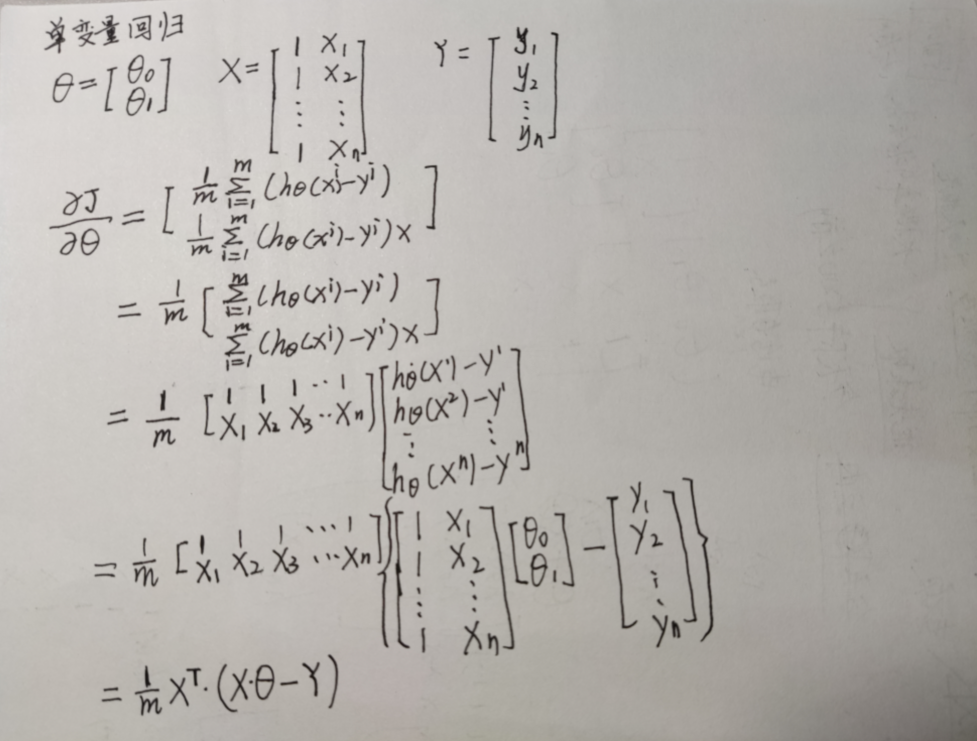 单变量回归
θ = [θ₀; θ₁] X = [1 x₁; 1 x₂; ⋮ ⋮; 1 xₙ] Y = [y₁; y₂; ⋮; yₙ]
∂J/∂θ = [1/m Σᵢ₌₁ᵐ (hθ(xⁱ) − yⁱ); 1/m Σᵢ₌₁ᵐ (hθ(xⁱ) − yⁱ)x]
= 1/m [Σᵢ₌₁ᵐ (hθ(xⁱ) − yⁱ); Σᵢ₌₁ᵐ (hθ(xⁱ) − yⁱ)x]
= 1/m [1 1 1 ⋯ 1; x₁ x₂ x₃ ⋯ xₙ] [hθ(x¹) − y¹; hθ(x²) − y¹; ⋮ ⋮; hθ(xⁿ) − yⁿ]
= 1/m [1 1 1 ⋯ 1; x₁ x₂ x₃ ⋯ xₙ] {[1 x₁; 1 x₂; ⋮ ⋮; 1 xₙ] [θ₀; θ₁] − [y₁; y₂; ⋮; yₙ]}
= 1/m Xᵀ·(X·θ − Y)